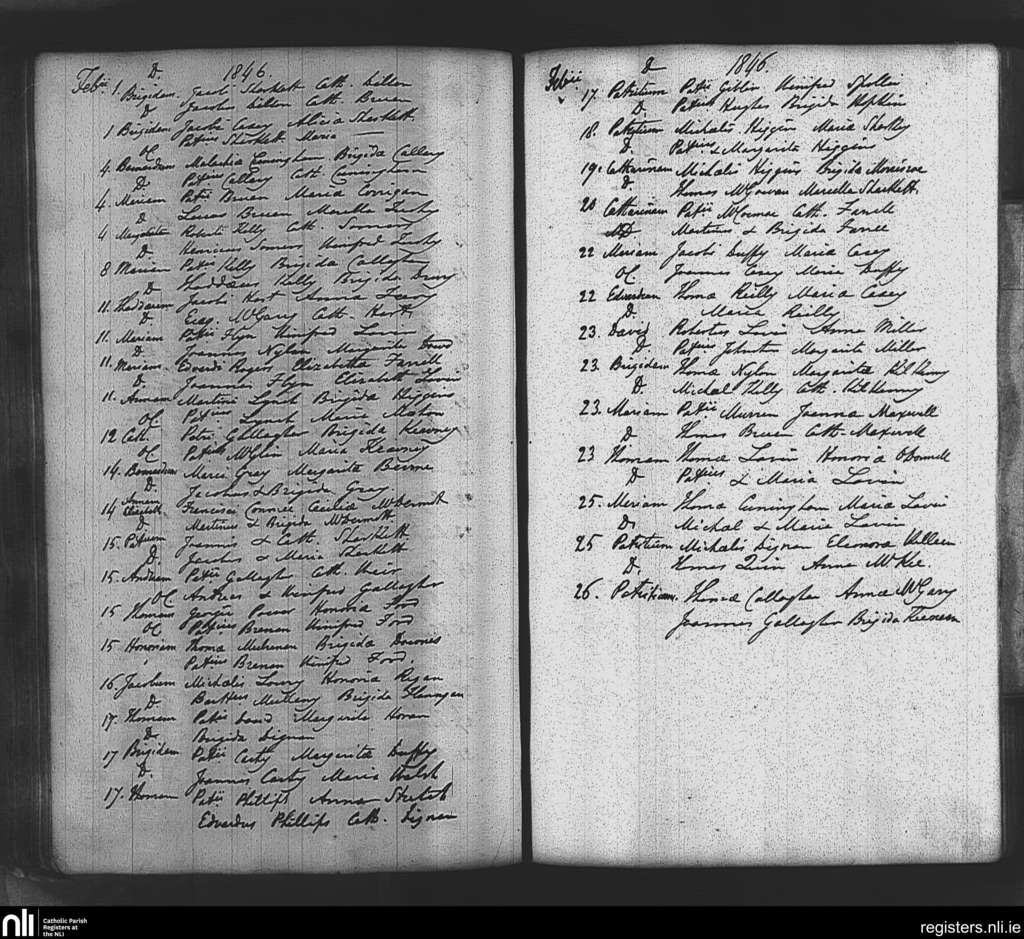 D. 1846.
Febii 1 Brigidam Jacobi Sharkett Cath. Lillen
D Jacobus Lillen Cath. Bruen
1 Brigidam Jacobi Casey Alicia Sharkett
Patius Sharkett Maria
4. Malachia Cuningham Brigida Callery
D. Patius Callery Cath Cuningham
4. Mariam Patii Bruen Maria Corrigan
D Lucas Bruen Marella
4 Margaritam Roberti Kelly Cath.
D. Henricus Winifred
8 Mariam Patii Kelly Brigida Callaghan
D Thaddaeus Kelly Brigida Drury
11. Thaddaeum Jacobi Hart Anna
D. McGarry Cath. Hart
11. Mariam Patii Flyn Winifred Lavin
D. Joannes Nylon Margarita Dowd
11. Mariam Edvardi Rogers Elizabetha Farrell
D. Joannes Flyn Elizabeth Lavin
11. Annam Martini Lynch Brigida Higgins
OC Patius Lynch Maria Mahon
12 Cath. Patii Gallagher Brigida Kearney
OC Patius McGlin Maria Kearney
14. Gray Margarita Beirne
D. Jacobus & Brigida Gray
14 Annam Elizabeth Francisci Connor Cecilia McDermott
D Martinus & Brigida McDermott
15. Patium Joannis & Cath. Sharkett
D. Jacobus & Maria Sharkett
15. Andream Patii Gallagher Cath. Weir
OC Andreas & Winifred Gallagher
15 Thomam Georgii Power Honoria Ford
OC Patius Brenan Winifred Ford
15 Honoriam Thoma Brigida Downes
Patius Brenan Winifred Ford.
16 Jacobum Michalis Lowry Honoria Regan
D Bartheus Brigida Flannagan
17. Thomam Patii Margarita Horan
D. Brigida Dignan
17 Brigidam Patii Carty Margarita Duffy
D. Joannes Carty Maria Walsh
17. Thomam Patii Phillips Anna Stretch
Edvardus Phillips Cath. Dignan
D 1846.
Febii 17. Patritium Patii Giblin Winifred Spollin
D. Patius Hughes Brigida Hopkin
18. Patritium Michalis Higgins Maria Sharkey
D. Patius & Margarita Higgins
19. Catharinam Michalis Higgins Brigida Morrisroe
D Thomas McGowan Marcella Sharkett
20 Catharinam Patii McCormac Cath. Farrell
D Martinus & Brigida Farrell
22 Mariam Jacobi Duffy Maria Casey
OC. Joannes Casey Maria Duffy
22 Edvardum Thoma Reilly Maria Casey
D. Maria Reilly
23. David Robertus Lavin Anne Miller
D. Patius Johnston Margarita Miller
23. Brigidam Thoma Nylon Margarita Kilkenny
D. Michal Kelly Cath. Kilkenny
23. Mariam Patii Murren Joanna Maxwell
D Thomas Bruen Cath. Maxwell
23 Thomam Thoma Lavin Honoria O'Donnell
D Patius & Maria Lavin
25. Mariam Thoma Cuningham Maria Lavin
D. Michal & Maria Lavin
25 Patritium Michalis Dignan Eleonora Killeen
D. Thomas Quin Anne McKee.
26. Patritium. Thoma Callaghan Anna McGarry
Joannes Gallagher Brigida Keenan
nli Catholic Parish
Registers at
the NLI
registers.nli.ie